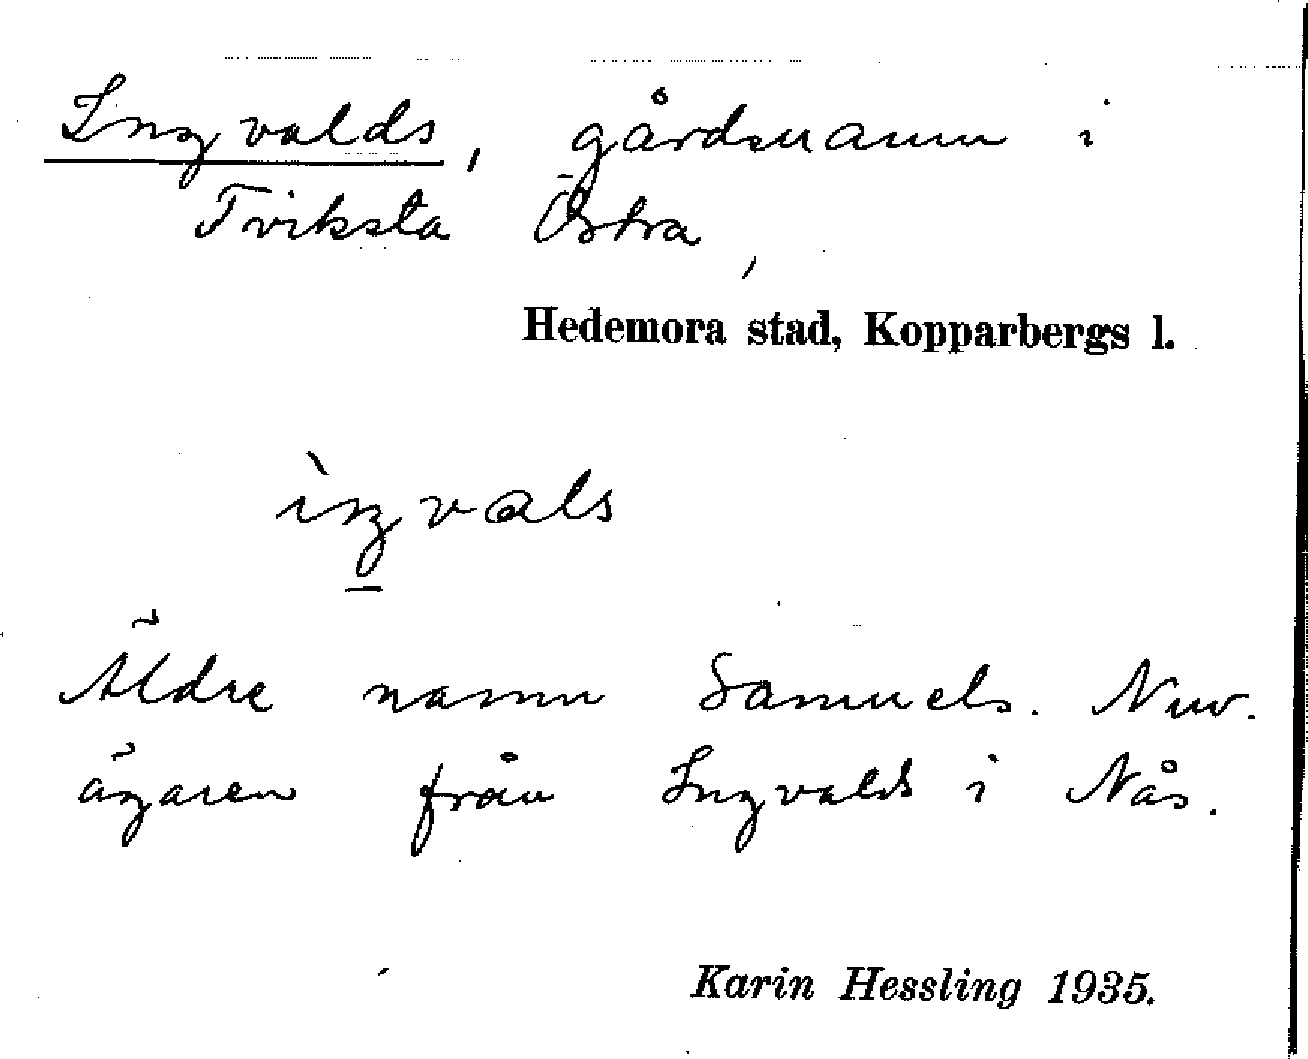 Ingvalds, gårdsnamn i
Tviksta Östra,
Hedemora stad, Kopparbergs l.
ìngvals
Äldre namn Samuels. Nuv.
ägaren från Ingvalds i Nås.
Karin Hessling 1935.